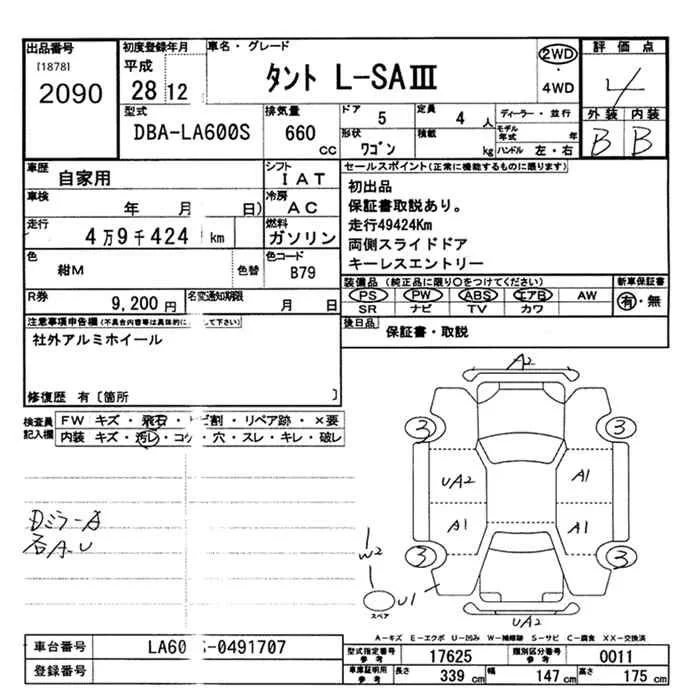 出品番号 初度登録年月 車名・グレード 評価点
[1878] 平成
2090 28 12 タント L-SAⅢ 2WD・4WD 4
型式 排気量 ドア 5 定員 4 人 ディーラー・並行 外装 内装
DBA-LA600S 660 cc 形状 ワゴン 積載 kg モデル年式 年 ハンドル 左・右 B B
車歴 自家用 シフト IAT セールスポイント(正常に機能するものに限ります)
車検 年 月 日) 冷房 AC
走行 4万9千424 km 燃料 ガソリン
色 紺M 色替 色コード B79
初出品
保証書取説あり。
走行49424Km
両側スライドドア
キーレスエントリー
R券 9,200円 名変通知期限 月 日
装備品 (純正品に限り○をつけてください) 新車保証書
PS PW ABS エアB AW 有・無
SR ナビ TV カワ
注意事項申告欄(不具合内容等は具体的に して下さい)
社外アルミホイール
後日品 保証書・取説
修復歴 有〔箇所 〕
検査員記入欄 FW キズ・飛石・ ビ割・リペア跡・×要
内装 キズ・汚レ・コゲ・穴・スレ・キレ・破レ
A2
3 3
UA2 A1
A1 A1
3 3
W2
U1
スペア
UA2
A-キズ E-エクボ U-凹み W-補修跡 S-サビ C-腐食 XX-交換済
車台番号 LA60 S-0491707
登録番号
型式指定番号 参考 17625 類別区分番号 参考 0011
車庫証明用 参考 長さ 339 cm 幅 147 cm 高さ 175 cm